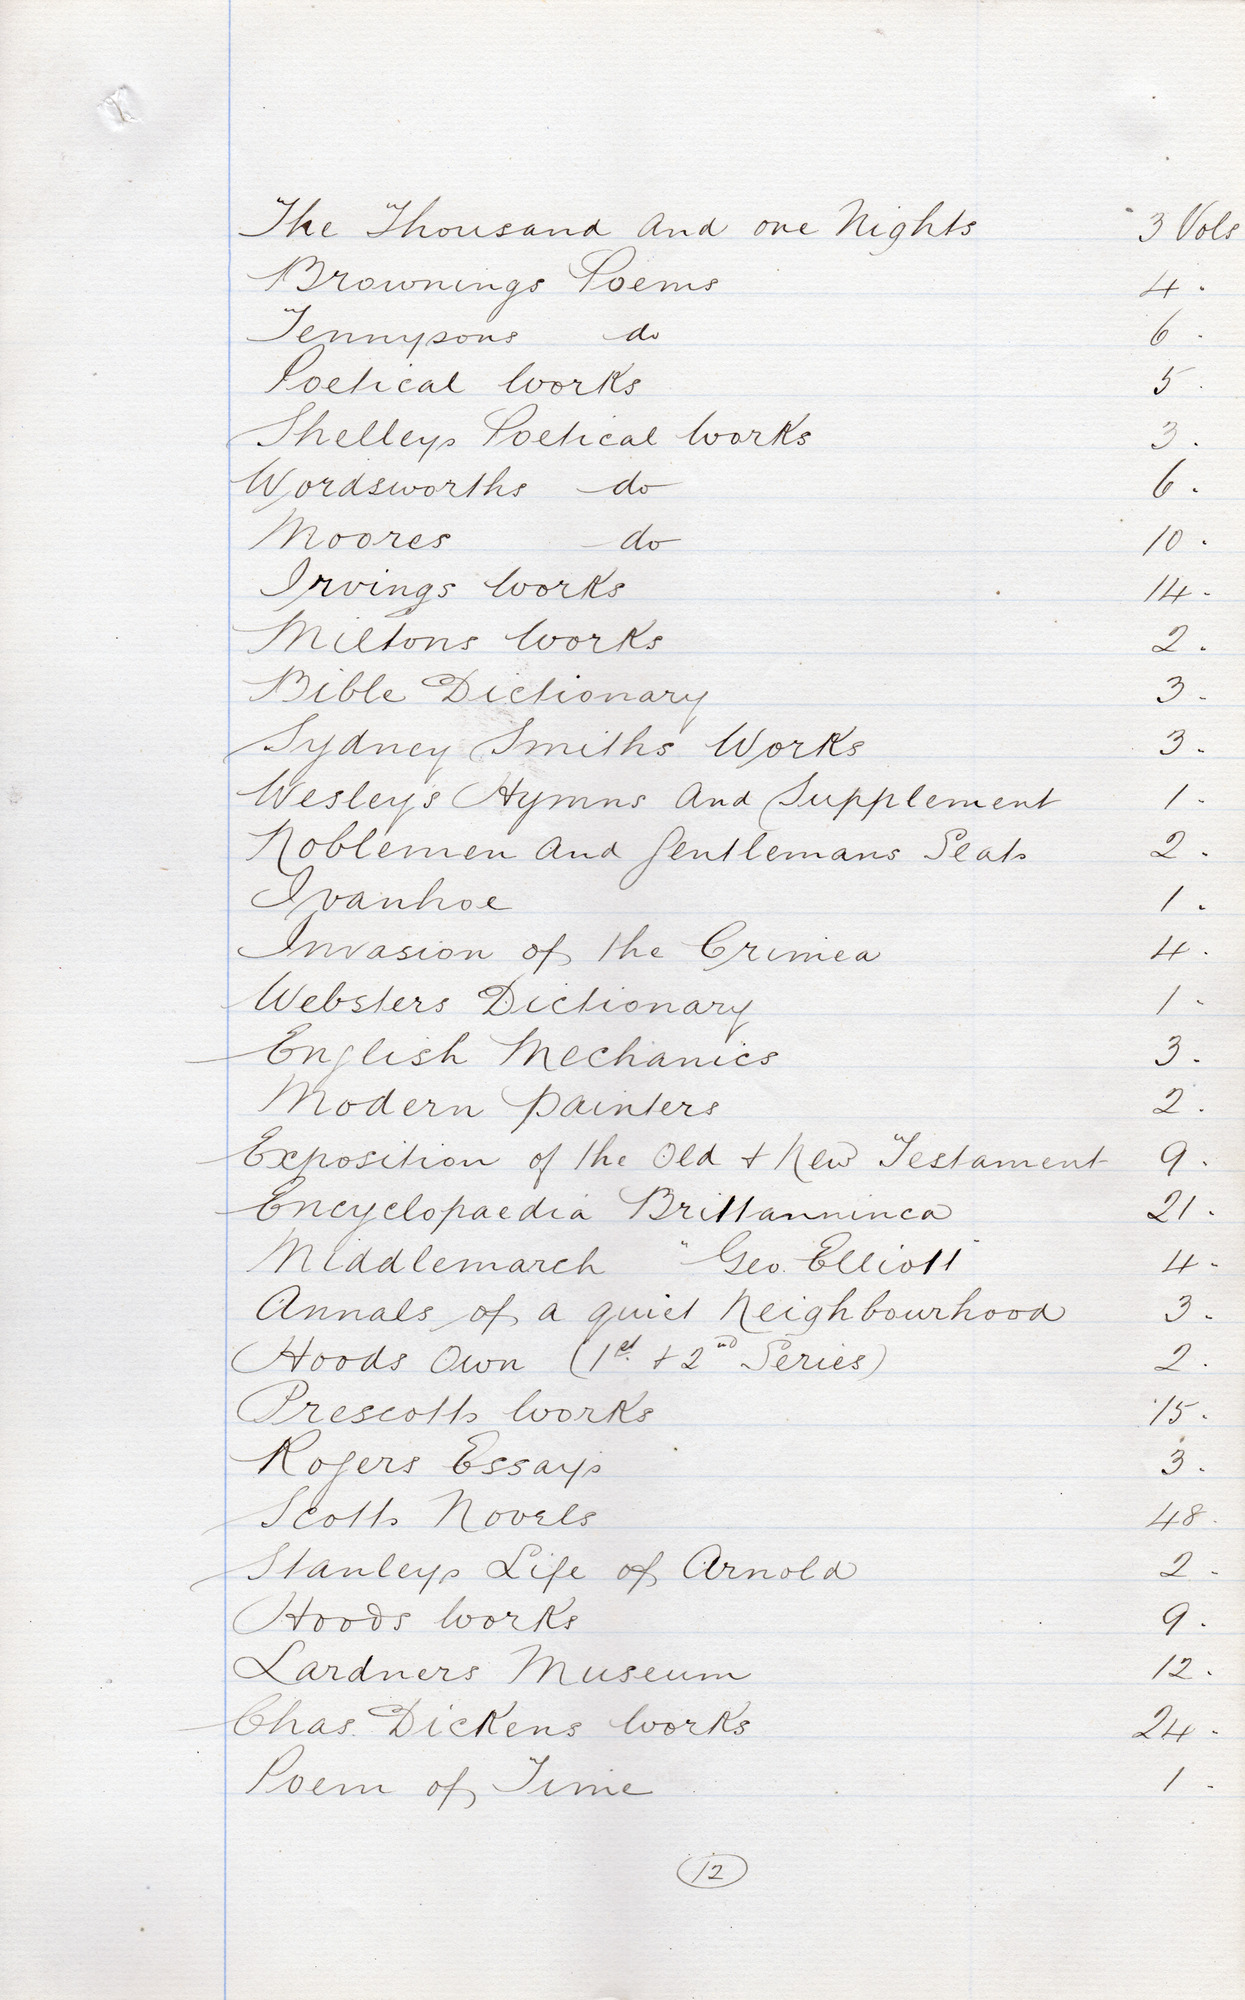 The Thousand and one Nights 3 Vols
Brownings Poems 4 .
Tennysons do 6 .
Poetical Works 5 .
Shelleys Poetical Works 3 .
Wordsworths do 6 .
Moores do 10 .
Irvings Works 14 .
Miltons Works 2 .
Bible Dictionary 3 .
Sydney Smiths Works 3 .
Wesley's Hymns and Supplement 1 .
Noblemen and Gentlemans Seats 2 .
Ivanhoe 1 .
Invasion of the Crimea 4 .
Websters Dictionary 1 .
English Mechanics 3 .
Modern Painters 2 .
Exposition of the Old + New Testament 9 .
Encyclopaedia Brittanninca 21 .
Middlemarch "Geo. Elliott" 4 .
Annals of a quiet Neighbourhood 3 .
Hoods Own (1st + 2nd Series) 2 .
Prescotts Works 15 .
Rogers Essays 3 .
Scotts Novels 48 .
Stanleys Life of Arnold 2 .
Hoods Works 9 .
Lardners Museum 12 .
Chas. Dickens Works 24 .
Poem of Time 1 .
12